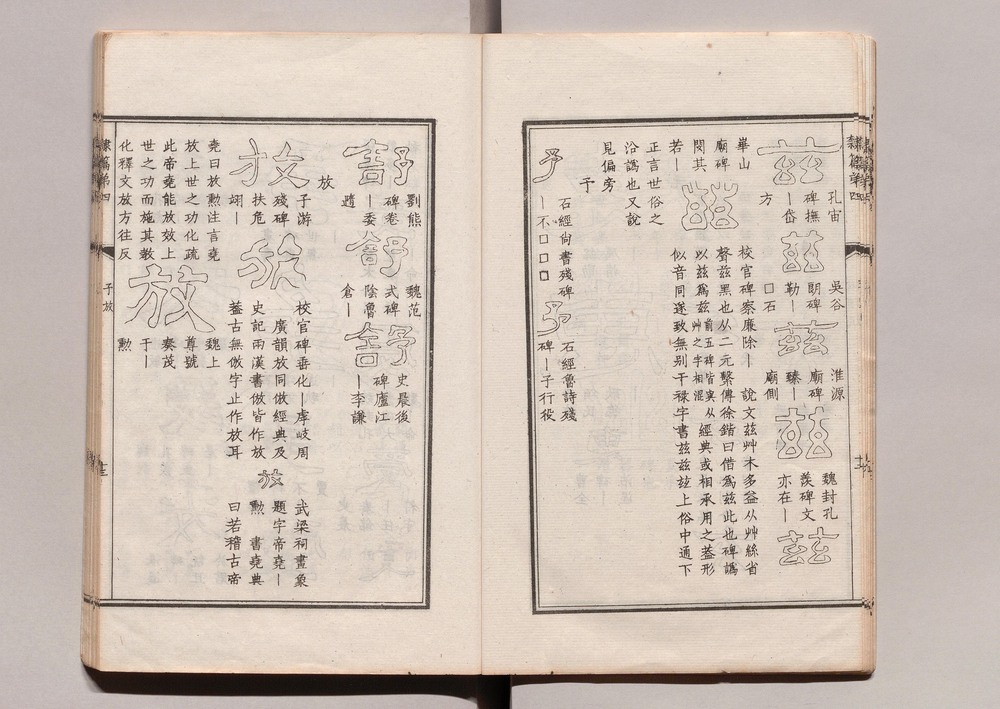 隸篇第四
茲
孔宙
碑撫
｜岱
方
茲
吳谷
朗碑
勒｜
口石
茲
淮源
廟碑
臻｜
廟側
茲
魏封孔
羨碑文
亦在｜
茲
華山
廟碑
閔其
若｜
茲
校官碑察廉除｜
說文茲艸木多益从艸絲省
聲茲黑也从二元繫傳徐鍇曰借爲茲此也碑譌
以茲爲茲前五碑皆寅从
艸之字相混
經典或相承用之葢形
似音同遂致無別干祿字書茲茲茲上俗中通下
正言世俗之
沿譌也又說
見偏旁
予
予
石經尙書殘碑
｜不口口口
予
石經魯詩殘
碑｜子行役
舒
劉熊
碑卷
｜委
隨
舒
魏范
式碑
陰魯
倉｜
舒
史晨後
碑廬江
｜李謙
放
放
子游
殘碑
扶危
翊｜
放
校官碑垂化｜虖岐周
廣韻放同倣經典及
史記兩漢書倣皆作放
葢古無倣字止作放耳
放
武梁祠畫象
題字帝堯｜
勲
書堯典
曰若稽古帝
堯曰放勲注言堯
放上世之功化疏
此帝堯能放效上
世之功而施其敎
化釋文放方往反
放
魏上
尊號
奏茂
于｜
勲
隸篇第四
予放